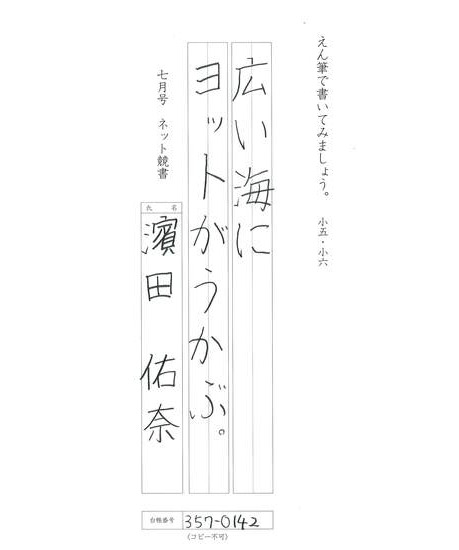 えん筆で書いてみましょう。　小五・小六
広い海に
ヨットがうかぶ。
七月号　ネット競書
氏名
濱田　佑奈
台帳番号 357-0142
(コピー不可)